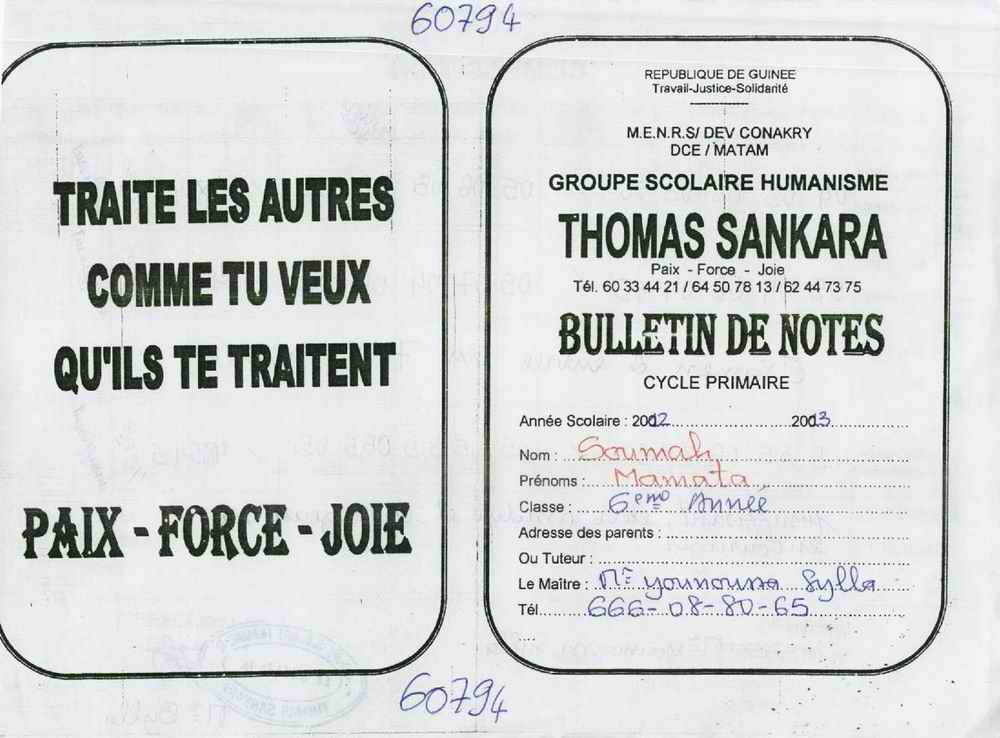 60794
TRAITE LES AUTRES
COMME TU VEUX
QU'ILS TE TRAITENT
PAIX - FORCE - JOIE
REPUBLIQUE DE GUINEE
Travail-Justice-Solidarité
M.E.N.R.S/ DEV CONAKRY
DCE / MATAM
GROUPE SCOLAIRE HUMANISME
THOMAS SANKARA
Paix - Force - Joie
Tél. 60 33 44 21 / 64 50 78 13 / 62 44 73 75
BULLETIN DE NOTES
CYCLE PRIMAIRE
Année Scolaire : 2012 2013
Nom : Soumah
Prénoms : Mamata
Classe : 6ème Année
Adresse des parents :
Ou Tuteur :
Le Maître : Mr Younoussa Sylla
Tél. 666-08-80-65
60794